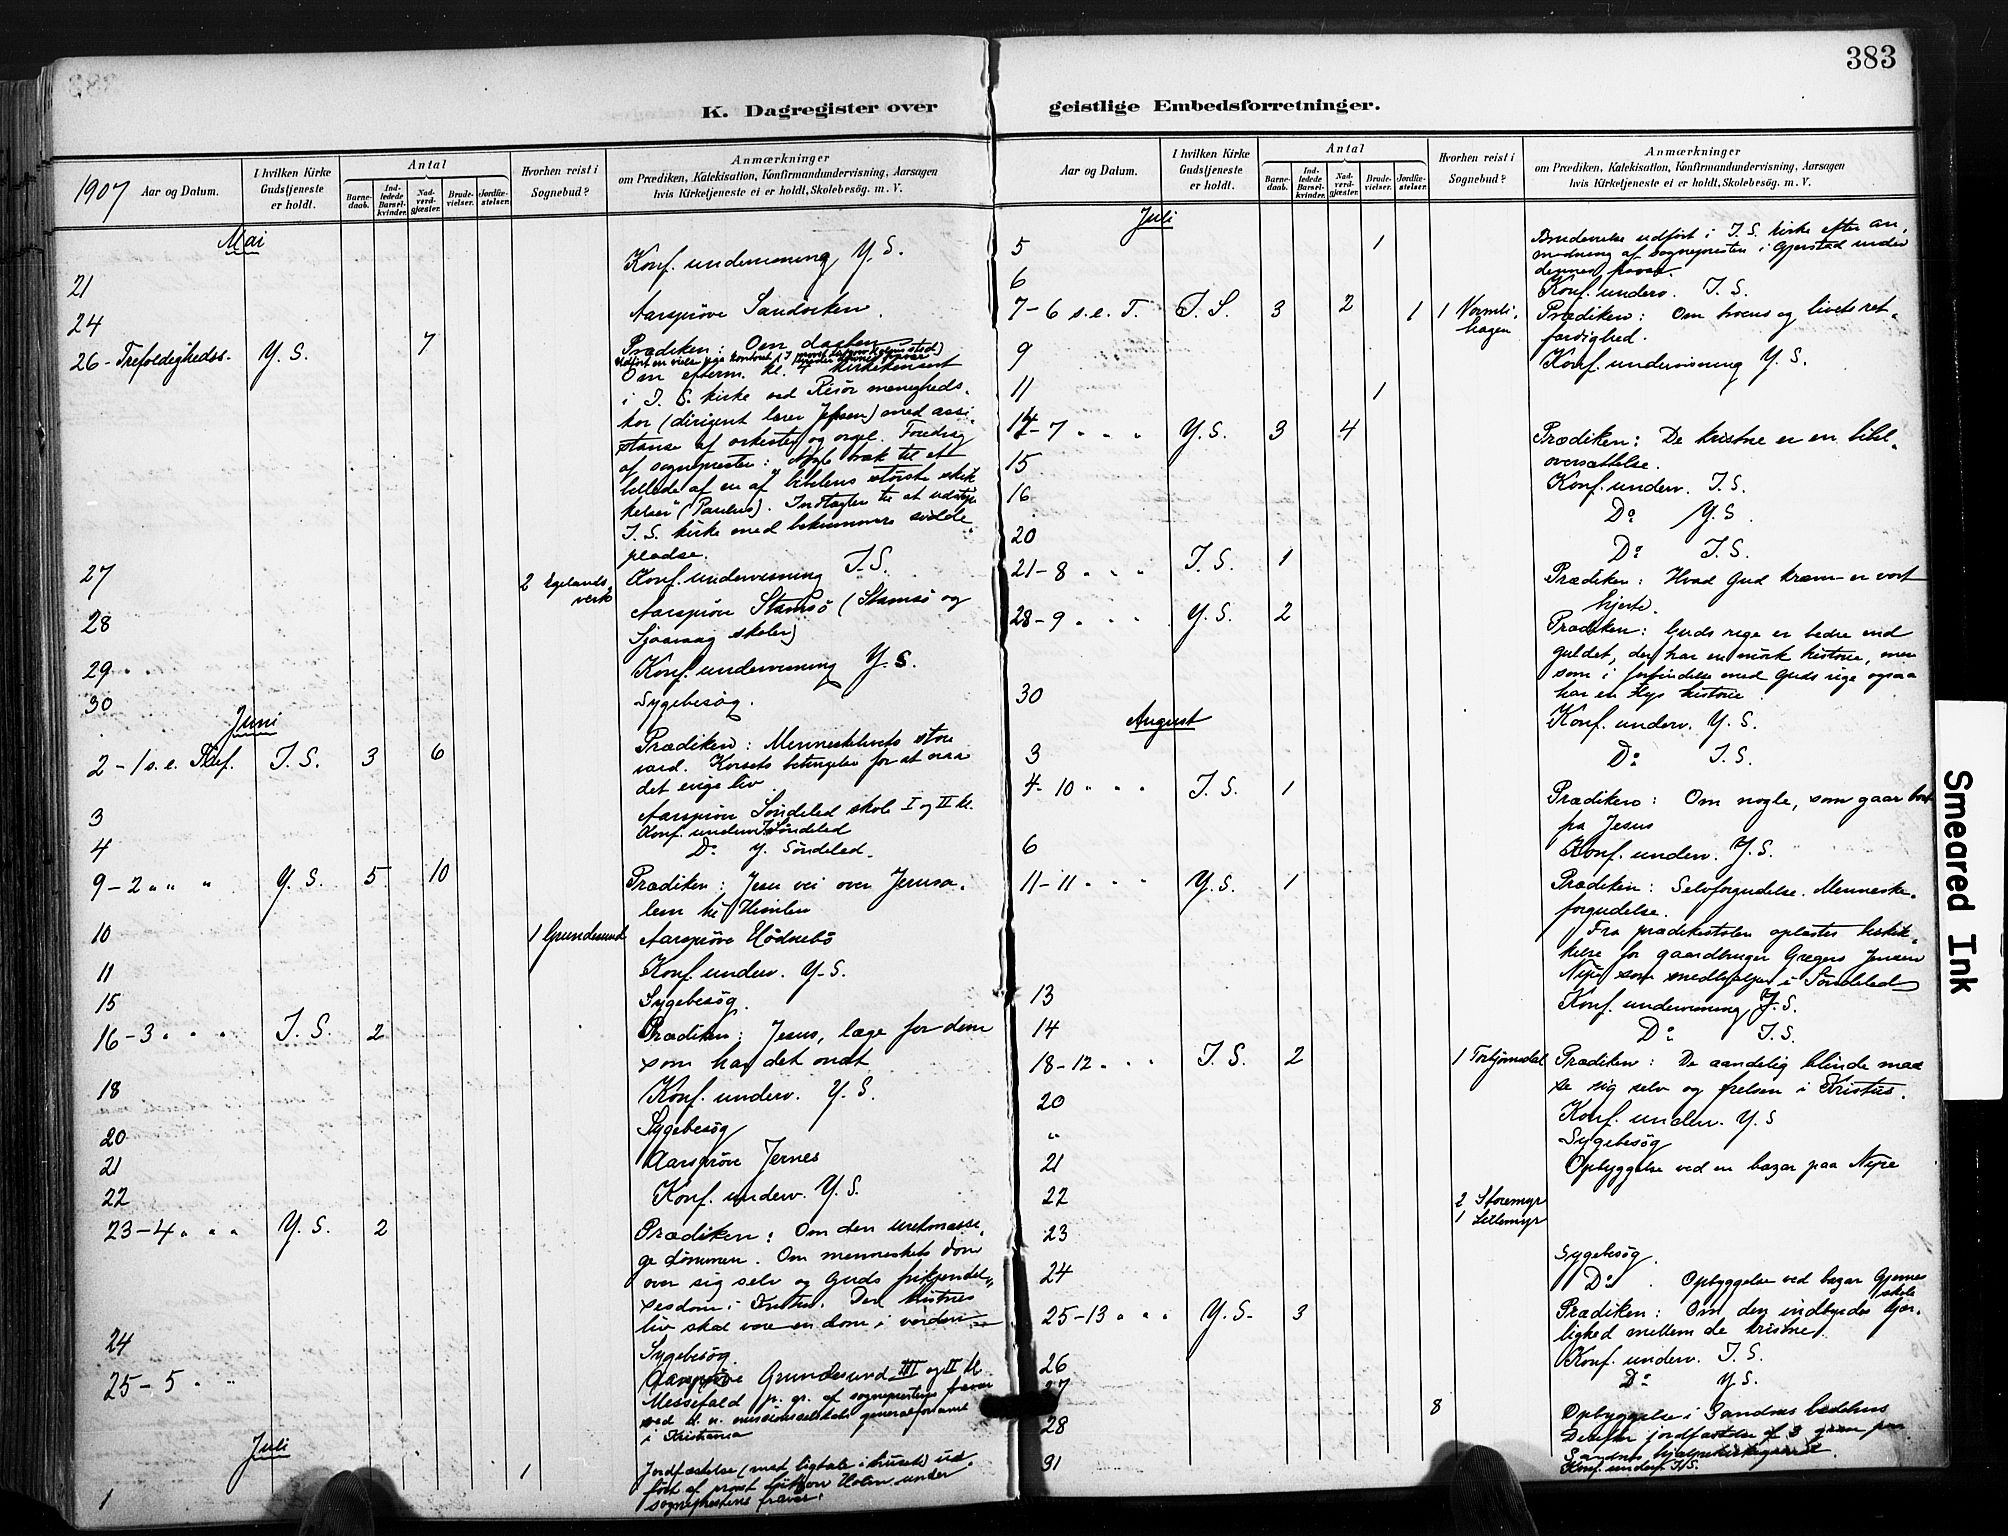 383
K. Dagregister over geistlige Embedsforretninger.
1907 Aar og Datum.
I hvilken Kirke Gudstjeneste er holdt.
Antal
Barnedaab.
Indledede Barselkvinder.
Nadverdgjæster.
Brudevielser.
Jordfæstelser.
Hvorhen reist i Sognebud?
Anmærkninger
om Prædiken, Katekisation, Konfirmandundervisning, Aarsagen
hvis Kirketjeneste ei er holdt, Skolebesøg. m. V.
Mai
21 Konf. undervisning Y. S.
24 Aarsprøve Sandviken.
26 - Trefoldighedss. Y. S. 7 Prædiken: Om daaben
Om efterm. kl. 4 kirkekonsert
i I. S. kirke ved Risør menigheds-
kor (dirigent lærer Jepsen) med assi-
stanse af orkester og orgel. Foredrag
af sognepresten: Nogle træk til et
billede af en af "bibelens største skik-
kelser" (Paulus). Indtægter til at udstyre
I. S. kirke med bekvemmere sidde-
pladse.
27 2 Egelands verk Konf. undervisning I. S.
28 Aarsprøve Stamsö (Stamsö og
Sjaavaag skoler)
29 Konf. undervisning Y. S.
30 Sygebesøg.
Juni
2 - 1 s. e. Tref. I. S. 3 6 Prædiken: Menneskelivets store
værd. Korsets betingelse for at
det evige liv.
3 Aarsprøve Söndeled skole I og II kl.
Konf. underv. I Söndeled
4 Do Y. Söndeled.
9 - 2 " " " Y. S. 5 10 Prædiken: Jesu vei over Jerusa-
lem til Himlen
10 1 Grundesund Aarsprøve Hödnebö
11 Konf. underv. Y. S.
15 Sygebesøg.
16 - 3 " " " I. S. 2 Prædiken: Jesus, læge for dem
som har det ondt
18 Konf. underv. Y. S.
20 Sygebesøg
21 Aarsprøve Jernes
22 Konf. underv. Y. S.
23 - 4 " " " Y. S. 2 Prædiken: Om den uretmæssi-
ge dömmen. Om menneskets dom
over sig selv og Guds frikjendel-
sesdom i Kristus. Den kristnes
liv skal være en dom i verden
24 Sygebesøg.
Aarsprøve Grundesund III og II kl.
25 - 5 " " Messefald p. gr. af sogneprestens fravær
ved d. n. missionsselskabs generalforsamt
i Kristiania
Juli
1 1 Jordfæstelse (med ligtale i huset) ud-
ført af provst Holm under
sogneprestens fravær.
Aar og Datum.
I hvilken Kirke Gudstjeneste er holdt.
Antal
Barnedaab.
Indledede Barselkvinder.
Nadverdgjæster.
Brudevielser.
Jordfæstelser.
Hvorhen reist i Sognebud?
Anmærkninger
om Prædiken, Katekisation, Konfirmandundervisning, Aarsagen
hvis Kirketjeneste ei er holdt, Skolebesøg. m. V.
Juli
5 1 Brudevielse udført i I. S. kirke efter an-
modning af sognepresten i Gjerstad under
dennes fravær.
6 Konf. underv. I. S.
7 - 6 s. e. T. I. S. 3 2 1 1 Vormli-
hagen Prædiken: Om troens og livets ret-
færdighed.
9 Konf. undervisning Y. S.
11 1
14 - 7 " " " Y. S. 3 4 Prædiken: De kristne er en bibel-
oversættelse.
15 Konf. underv. I. S.
16 Do Y. S.
20 Do I. S.
21 - 8 " " " I. S. 1 Prædiken: Hvad Gud kræver er vort
hjerte.
28 - 9 " " " Y. S. 2 Prædiken: Guds rige er bedre end
guldet, der har en mörk historie, men
som i forbindelse med Guds rige ogsaa
har en lys historie.
30 Konf. underv. Y. S.
August
3 Do I. S.
4 - 10 " " " I. S. 1 Prædiken: Om nogle, som gaar bort
fra Jesus
6 Konf. underv. Y. S.
11 - 11 " " " Y. S. 1 Prædiken: Selvforgudelse. Menneske-
forgudelse.
Fra prædikestolen oplæstes beskik-
kelse for gaardbruger Gregers Jensen
Nipe som medhjelper i Söndeled
13 Konf. undervisning Y. S.
14 Do I. S.
18 - 12 " " " I. S. 2 1 Torbjörnsdal Prædiken: De aandelig blinde maa
se sig selv og frelsen i Kristus.
20 Konf. underv. Y. S
" Sygebesøg
21 Opbyggelse ved en bazar paa Nipe
22 2 Storemyr
1 Lillemyr
23 Sygebesøg.
24 Do. Opbyggelse ved bazar Gjernes
skole
25 - 13 " " " Y. S. 3 Prædiken: Om den indbyrdes kjær-
lighed mellem de kristne.
26 Konf. underv. I. S.
27 Do Y. S.
28 8 Opbyggelse i Sandnes bedehus
Derefter jordfæstelse af 8 paa
Sandnes
31 Konf. underv. I. S.
Smeared Ink